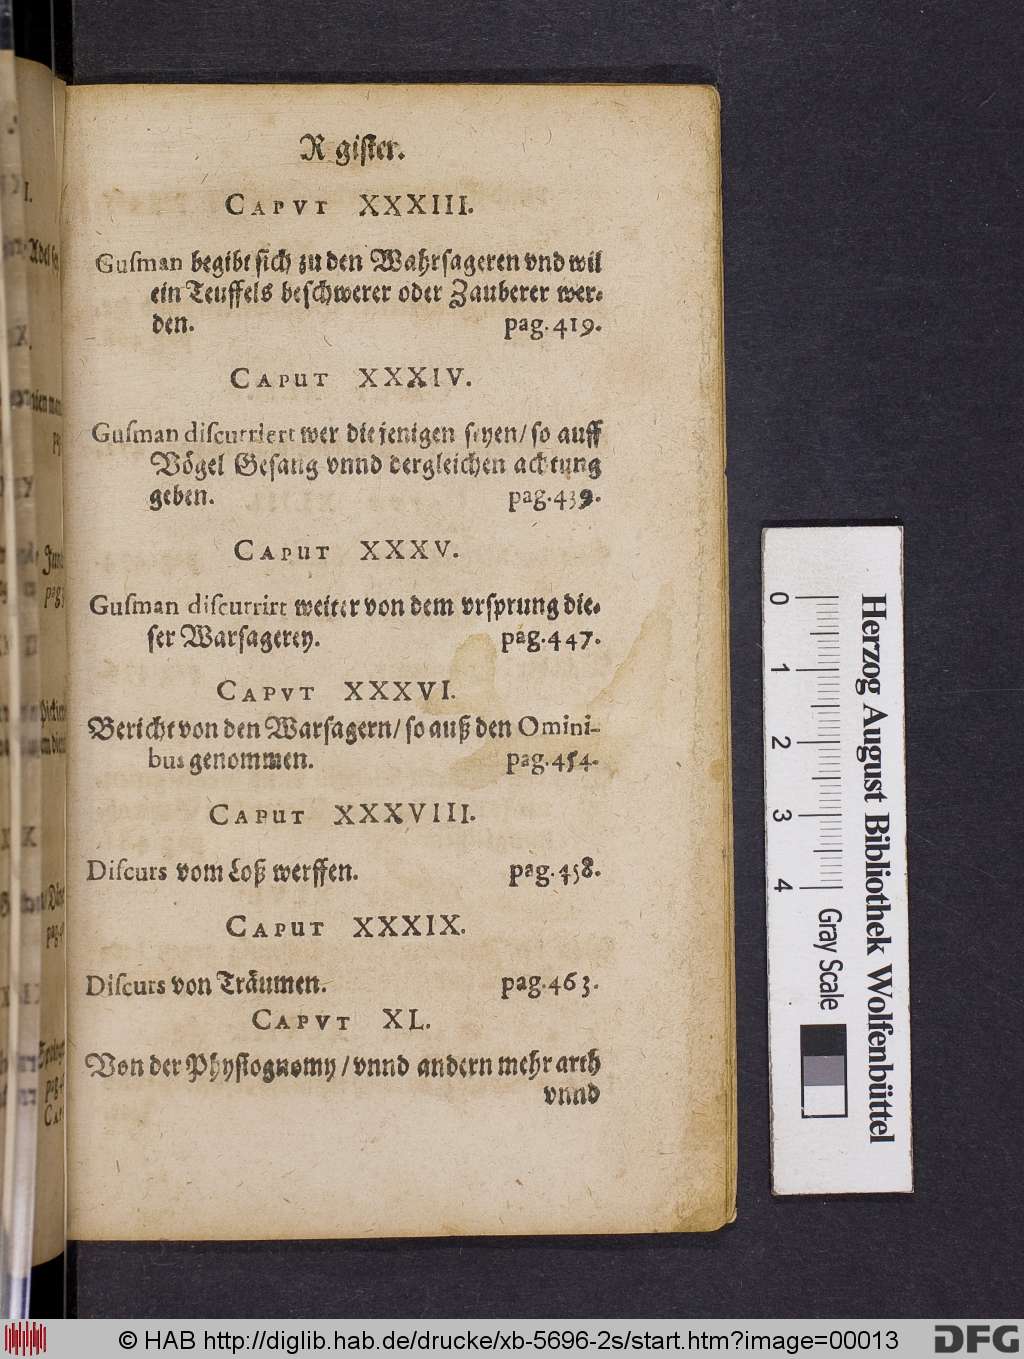 R gister.
CAPVT XXXIII.
Guſman begibt ſich zu den Wahrſageren vnd wil
ein Teuffels beſchwerer oder Zauberer wer-
den. pag. 419.
CAPUT XXXIV.
Guſman diſcurriert wer die jenigen ſeyen/ ſo auff
Vögel Geſang vnnd dergleichen achtung
geben. pag. 439.
CAPUT XXXV.
Guſman diſcurrirt weiter von dem vrſprung die-
ſer Warſagerey. pag. 447.
CAPVT XXXVI.
Bericht von den Warſagern/ ſo auß den Omini-
bus genommen. pag. 454.
CAPUT XXXVIII.
Diſcurs vom Loß werffen. pag. 458.
CAPUT XXXIX.
Diſcurs von Träumen. pag. 463.
CAPVT XL.
Von der Phyſiognomy / vnnd andern mehr arth
vnnd
Herzog August Bibliothek Wolfenbüttel
0 1 2 3 4 Gray Scale
© HAB http://diglib.hab.de/drucke/xb-5696-2s/start.htm?image=00013
DFG